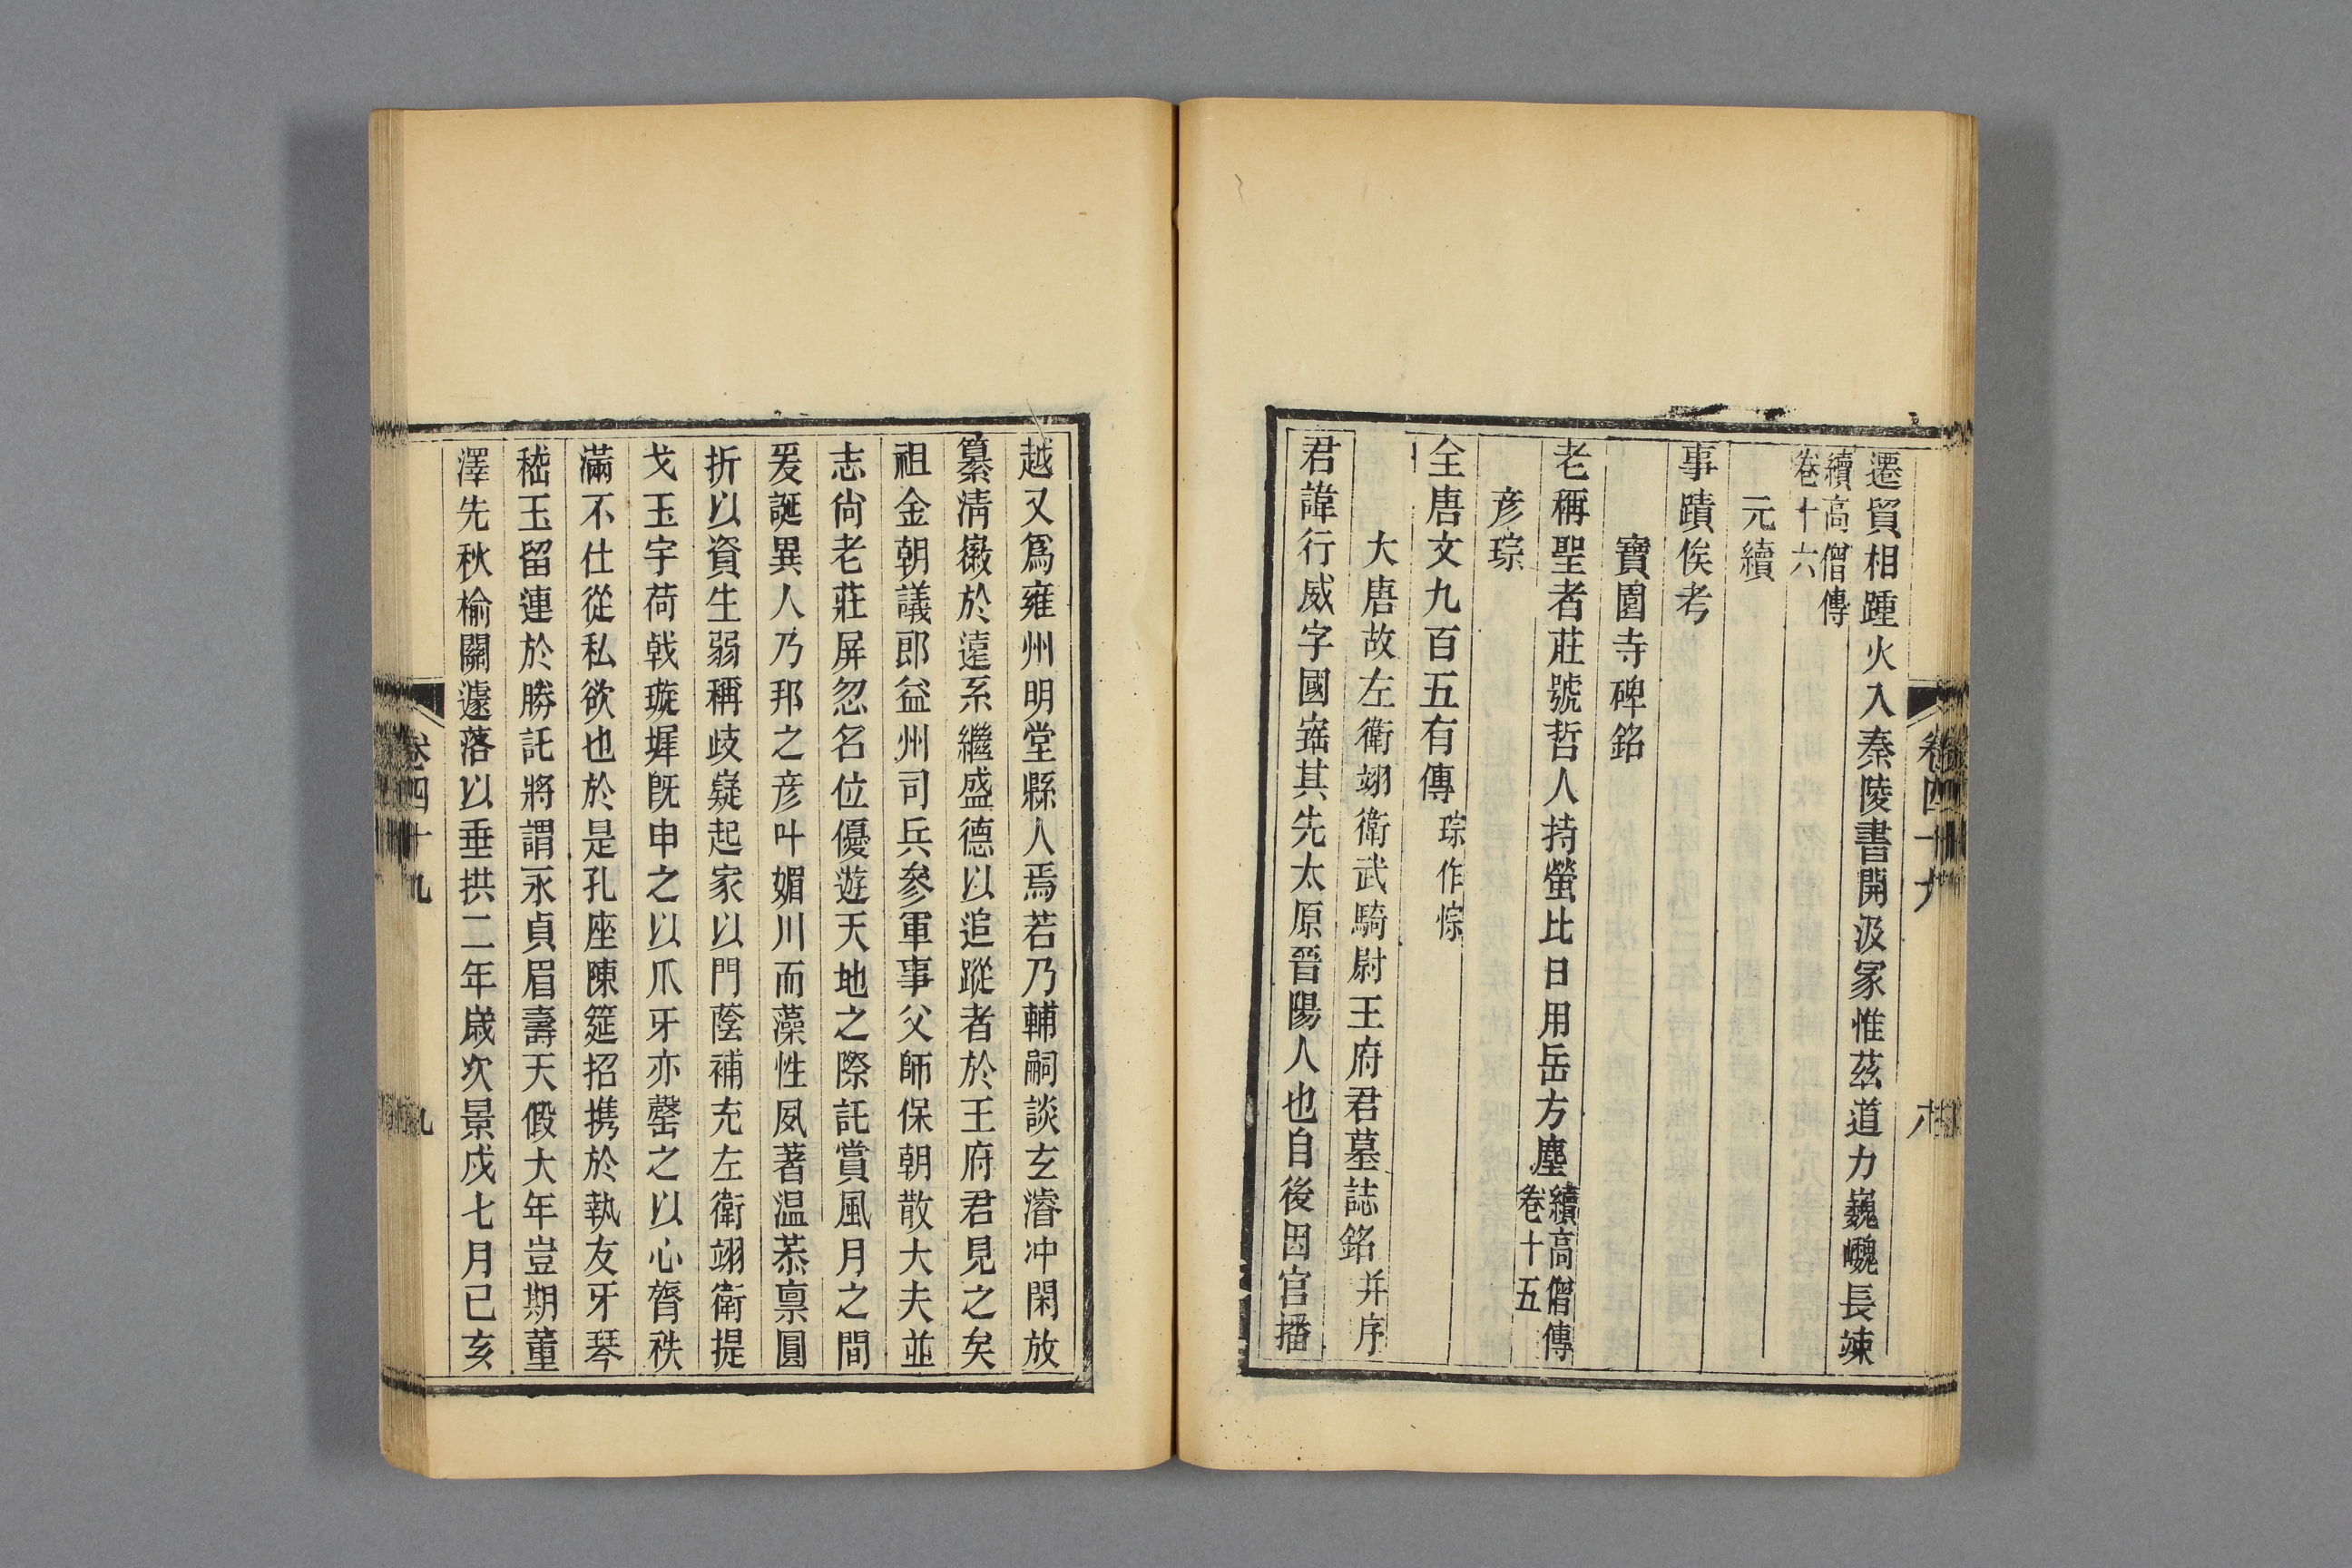 遷貿相踵火入秦陵書開汲冢惟茲道力巍巍長竦
續高僧傳
卷十六
元續
事蹟俟考
寶園寺碑銘
老稱聖者莊號哲人持螢比日用岳方塵續高僧傳
卷十五
彥琮
全唐文九百五有傳琮作悰
大唐故左衛翊衛武騎尉王府君墓誌銘并序
君諱行威字國寚其先太原晉陽人也自後因官播
越又爲雍州明堂縣人焉若乃輔嗣談玄濬冲閑放
纂淸徽於遠系繼盛德以追蹤者於王府君見之矣
祖金朝議郎益州司兵參軍事父師保朝散大夫並
志尙老莊屏忽名位優遊天地之際託賞風月之間
爰誕異人乃邦之彥叶媚川而藻性夙著温恭禀圓
折以資生弱稱歧嶷起家以門蔭補充左衛翊衛提
戈玉宇荷戟璇墀旣申之以爪牙亦罄之以心膂秩
滿不仕從私欲也於是孔座陳筵招携於執友牙琴
嵇玉留連於勝託將謂永貞眉壽天假大年豈期董
澤先秋榆關遽落以垂拱二年歲次景戌七月己亥
卷四十九
九